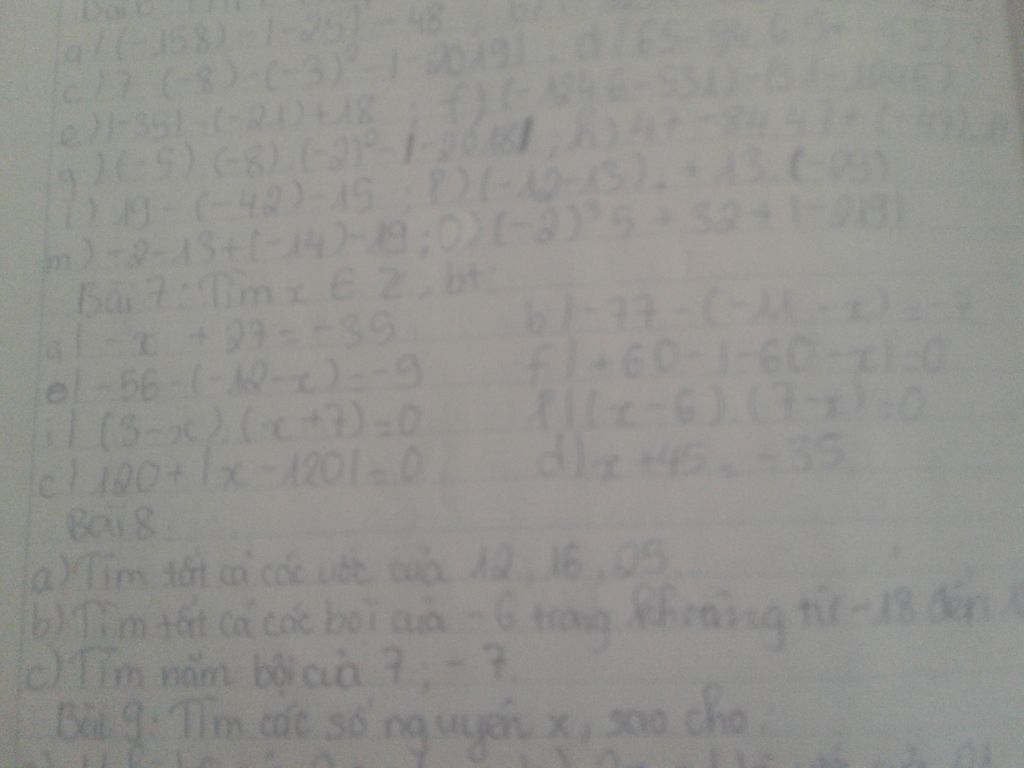 a) (-158) - |-25| - 48
c) 7 (-8) - (-3)² - |-2019| ; d)
e) |-35| - (-21) + 18 ; f) (-1246-
g) (-5).(-8).(-2)² - |-2018| ; h) 47 - 84 47 + (-47)
i) 19 - (-42) - 15 ; P) (-12-13). + 13.(-29)
m) -2-13+(-14)-19 ; O) (-2)³ 5 + 32 + |-219|
Bài 7: Tìm x ∈ Z, bt:
a) -x + 27 = -35 b) -77 - (-11 - x) = -7
e) -56 - (-12 - x) = -9 f) +60 - |-60 - x| = 0
i) (3-x).(x+7) = 0 P) (x-6).(7-x) = 0
c) 120 + |x - 120| = 0 d) x + 45 = -35
Bài 8.
a) Tìm tất cả các ước của 12, 16, 05
b) Tìm tất cả các bội của -6 trong khoảng từ -18 đến
c) Tìm năm bội của 7 ; -7.
Bài 9: Tìm các số nguyên x, sao cho: